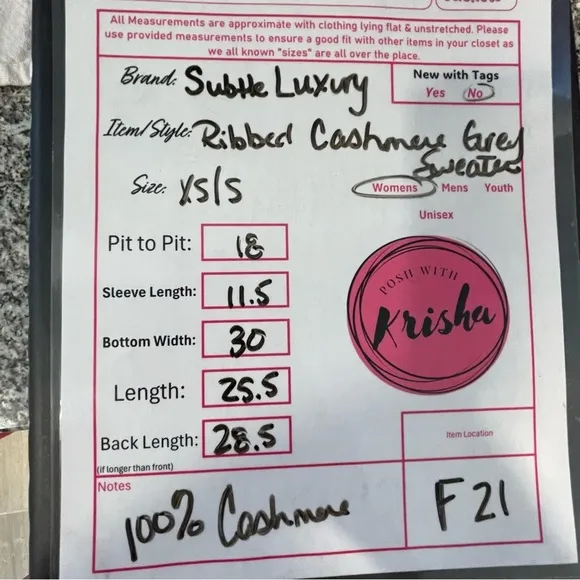 All Measurements are approximate with clothing lying flat & unstretched. Please
use provided measurements to ensure a good fit with other items in your closet as
we all known "sizes" are all over the place.
Brand: Subtle Luxury
New with Tags
Yes No
Item/Style: Ribbed Cashmere Grey
Sweater
Size: XS/S
Womens Mens Youth
Unisex
Pit to Pit: 18
Sleeve Length: 11.5
Bottom Width: 30
Length: 25.5
Back Length: 28.5
(if longer than front)
POSH WITH
Krisha
Item Location
F21
Notes
100% Cashmere